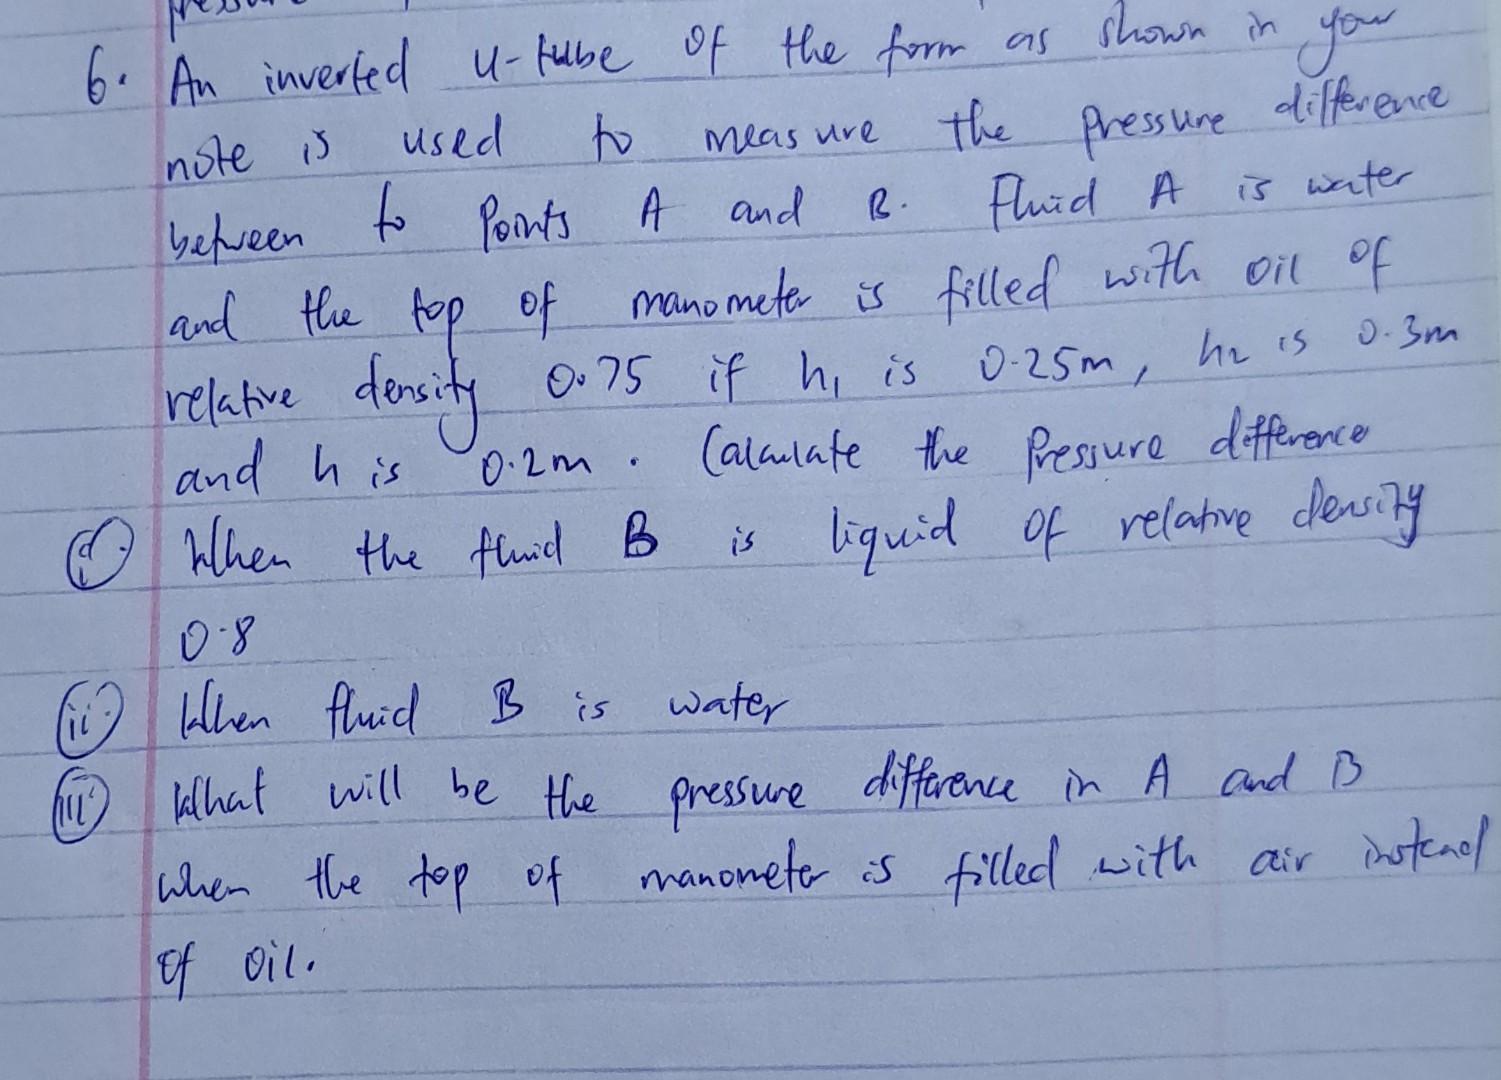 pressure
6. An inverted U-tube of the form as shown in your
note is used to measure the pressure difference
between to points A and B. Fluid A is water
and the top of manometer is filled with oil of
relative density 0.75 if h₁ is 0.25m, h₂ is 0.3m
and h is 0.2m. Calculate the Pressure difference
(i) When the fluid B is liquid of relative density
0.8
(ii) When fluid B is water
(iii) What will be the pressure difference in A and B
when the top of manometer is filled with air instead
of oil.